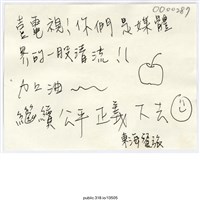 0000289
壹電視,你們是媒體
界的一股清流!!
加油~~
繼續公平正義下去
東海發派
public.318.io/10500